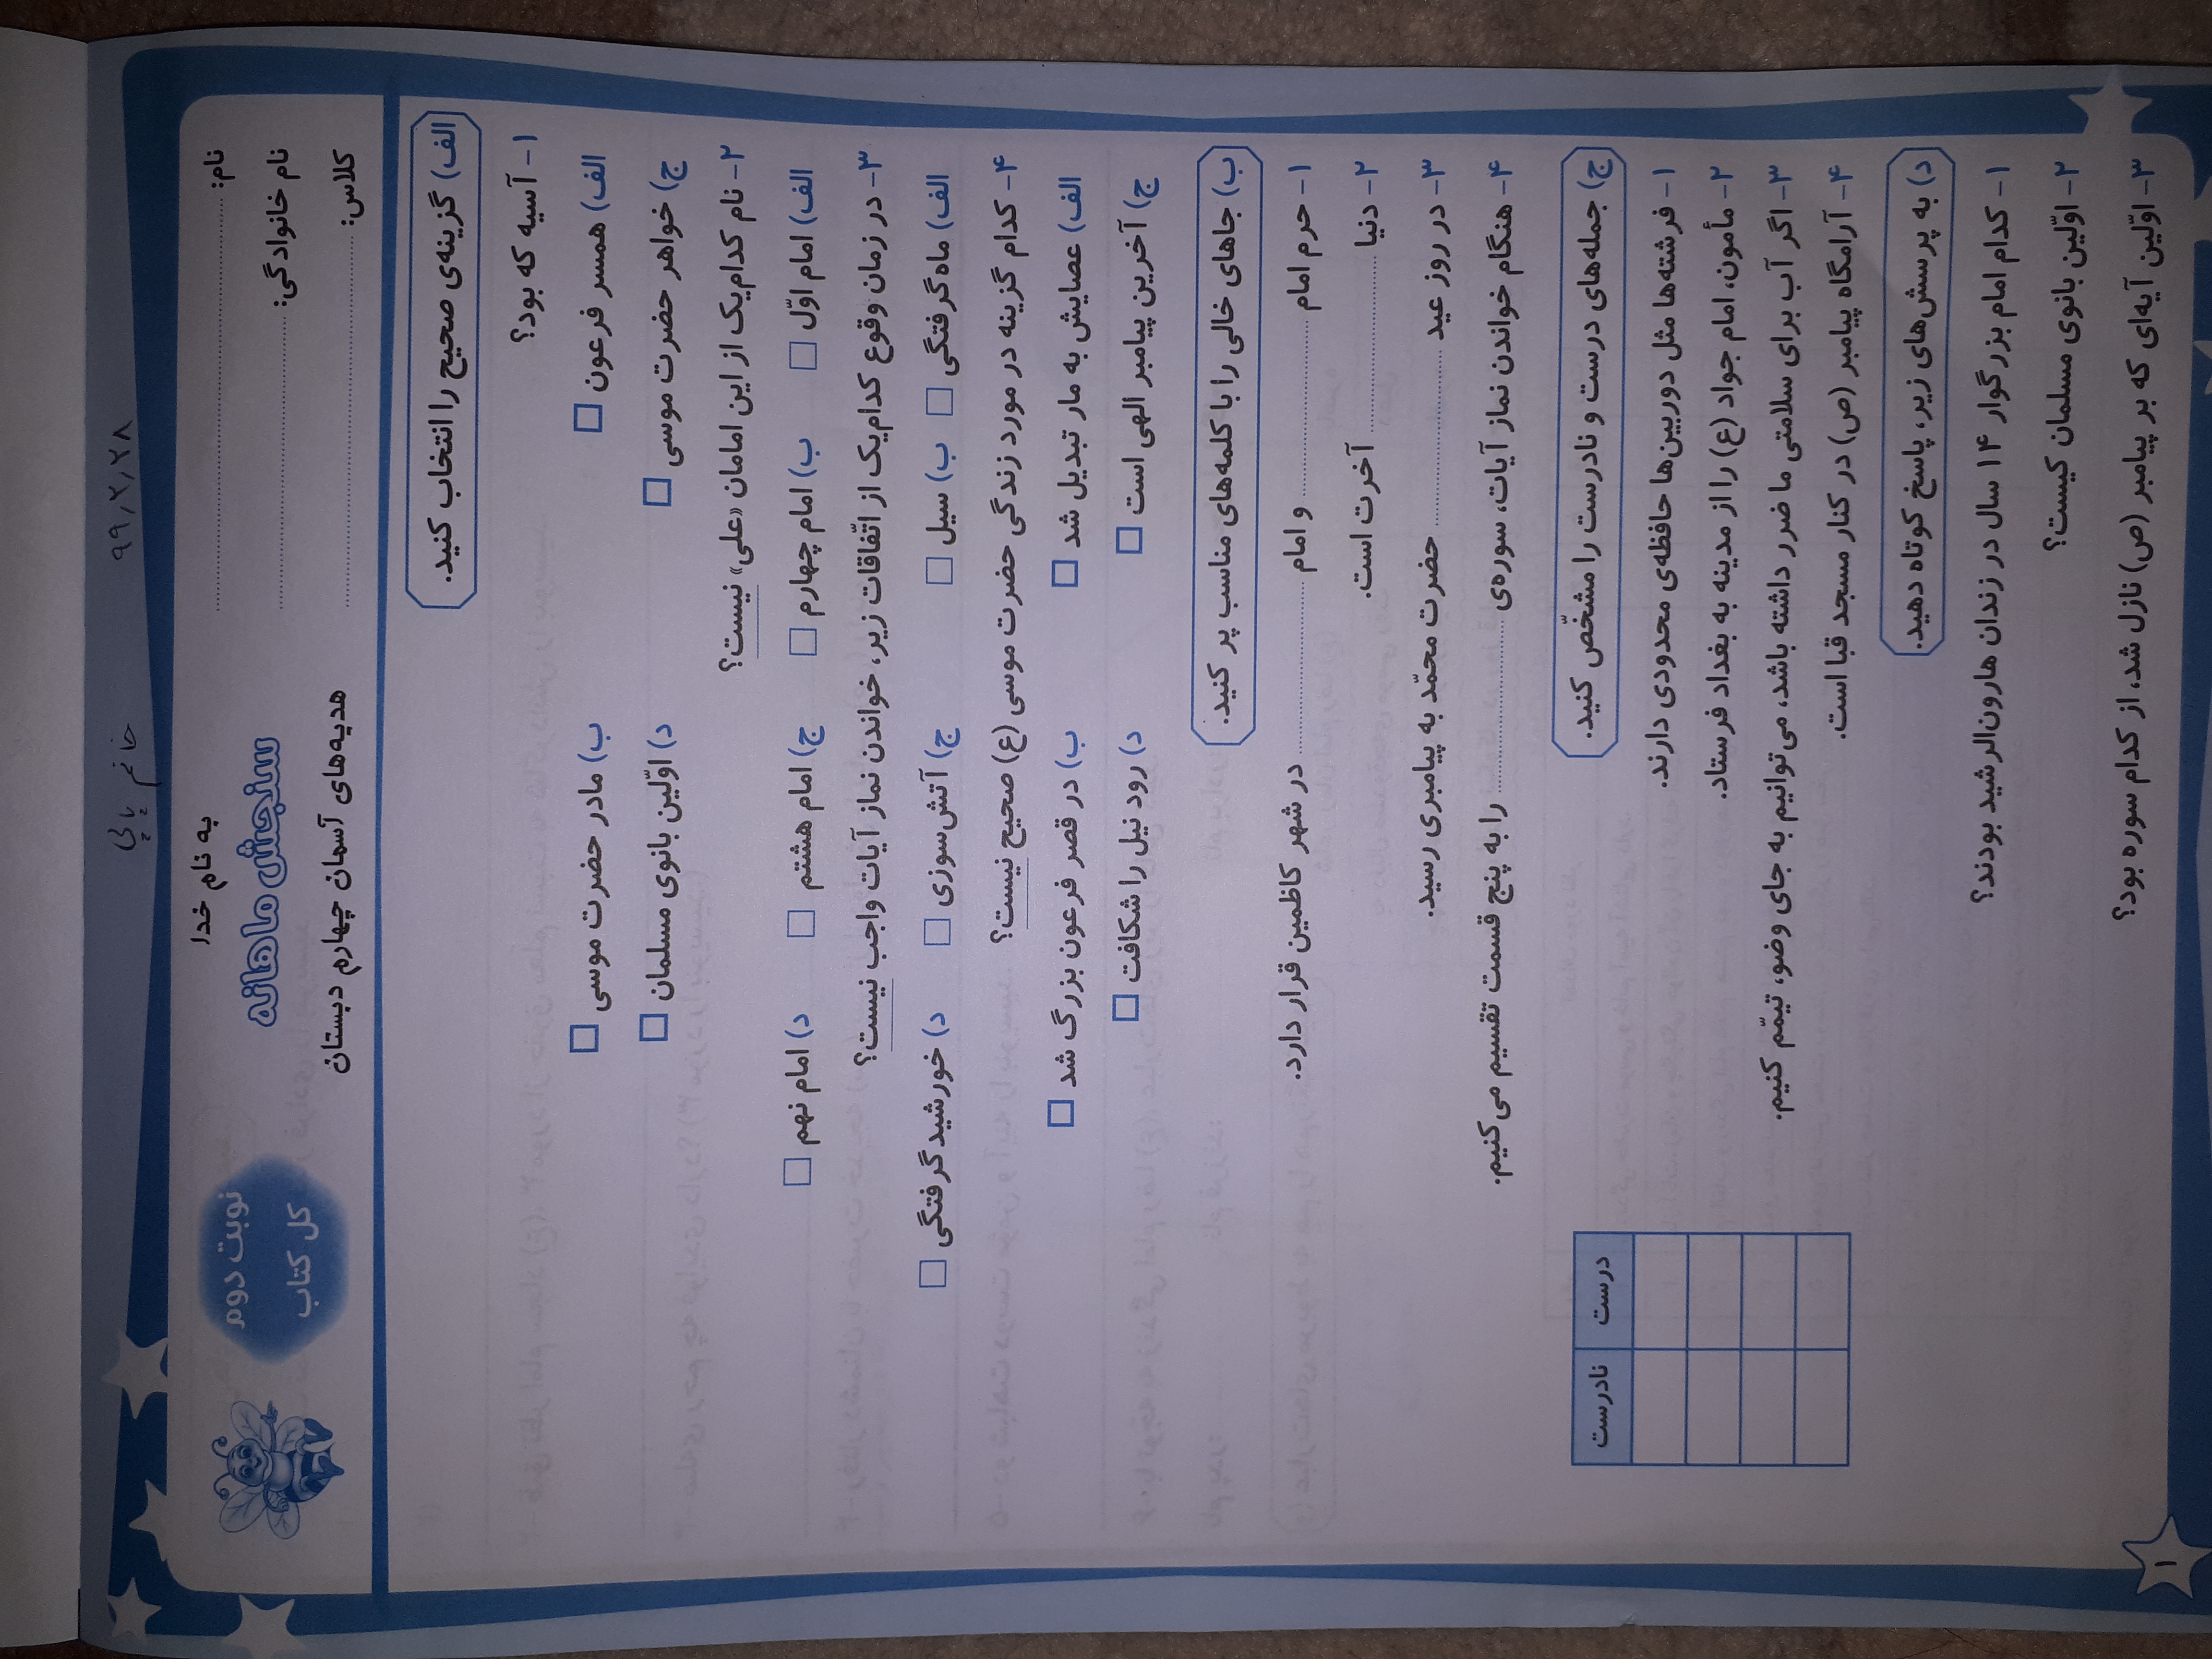 ۹۹٫۲٫۲۸ خانم پاپی
نام:
نام خانوادگی:
کلاس:
به نام خدا
سنجش ماهانه
هدیه‌های آسمان چهارم دبستان
نوبت دوم
کل کتاب
الف) گزینه‌ی صحیح را انتخاب کنید.
۱- آسیه که بود؟
الف) همسر فرعون ب) مادر حضرت موسی
ج) خواهر حضرت موسی د) اوّلین بانوی مسلمان
۲- نام کدام‌یک از این امامان «علی» نیست؟
الف) امام اوّل ب) امام چهارم ج) امام هشتم د) امام نهم
۳- در زمان وقوع کدام‌یک از اتّفاقات زیر، خواندن نماز آیات واجب نیست؟
الف) ماه‌گرفتگی ب) سیل ج) آتش‌سوزی د) خورشیدگرفتگی
۴- کدام گزینه در مورد زندگی حضرت موسی (ع) صحیح نیست؟
الف) عصایش به مار تبدیل شد ب) در قصر فرعون بزرگ شد
ج) آخرین پیامبر الهی است د) رود نیل را شکافت
ب) جاهای خالی را با کلمه‌های مناسب پر کنید.
۱- حرم امام .................... و امام .................... در شهر کاظمین قرار دارد.
۲- دنیا .................... آخرت است.
۳- در روز عید .................... حضرت محمّد به پیامبری رسید.
۴- هنگام خواندن نماز آیات، سوره‌ی .................... را به پنج قسمت تقسیم می‌کنیم.
ج) جمله‌های درست و نادرست را مشخّص کنید.
درست نادرست
۱- فرشته‌ها مثل دوربین‌ها حافظه‌ی محدودی دارند.
۲- مأمون، امام جواد (ع) را از مدینه به بغداد فرستاد.
۳- اگر آب برای سلامتی ما ضرر داشته باشد، می‌توانیم به جای وضو، تیمّم کنیم.
۴- آرامگاه پیامبر (ص) در کنار مسجد قبا است.
د) به پرسش‌های زیر، پاسخ کوتاه دهید.
۱- کدام امام بزرگوار ۱۴ سال در زندان هارون‌الرشید بودند؟
۲- اوّلین بانوی مسلمان کیست؟
۳- اوّلین آیه‌ای که بر پیامبر (ص) نازل شد، از کدام سوره بود؟
۱